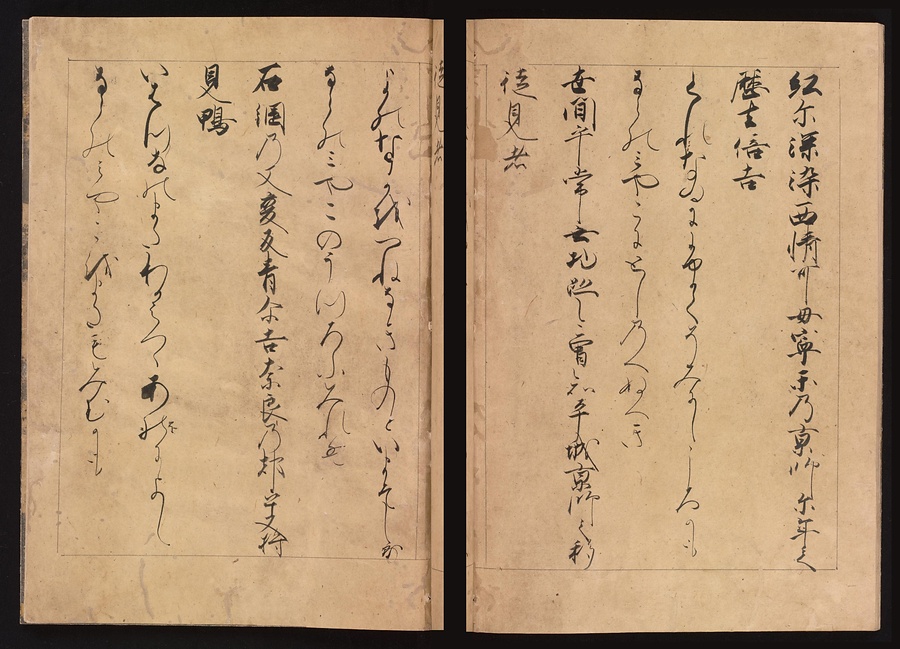 紅尓深染西情可毋寧樂乃京師尓年之
歴去倍吉
くれなゐにふかくそみにしこゝろかも
ならのみやこにとしのへぬへき
世間乎常無物跡今曽知平城京師之移
徙見者
よのなかをつねなきものといまそしる
ならのみやこのうつろふみれは
石綱乃又變反青尓吉奈良乃都乎又将
見鴨
いはつなのまたわかへりつゝあをによし
ならのみやこをまたもみむかも